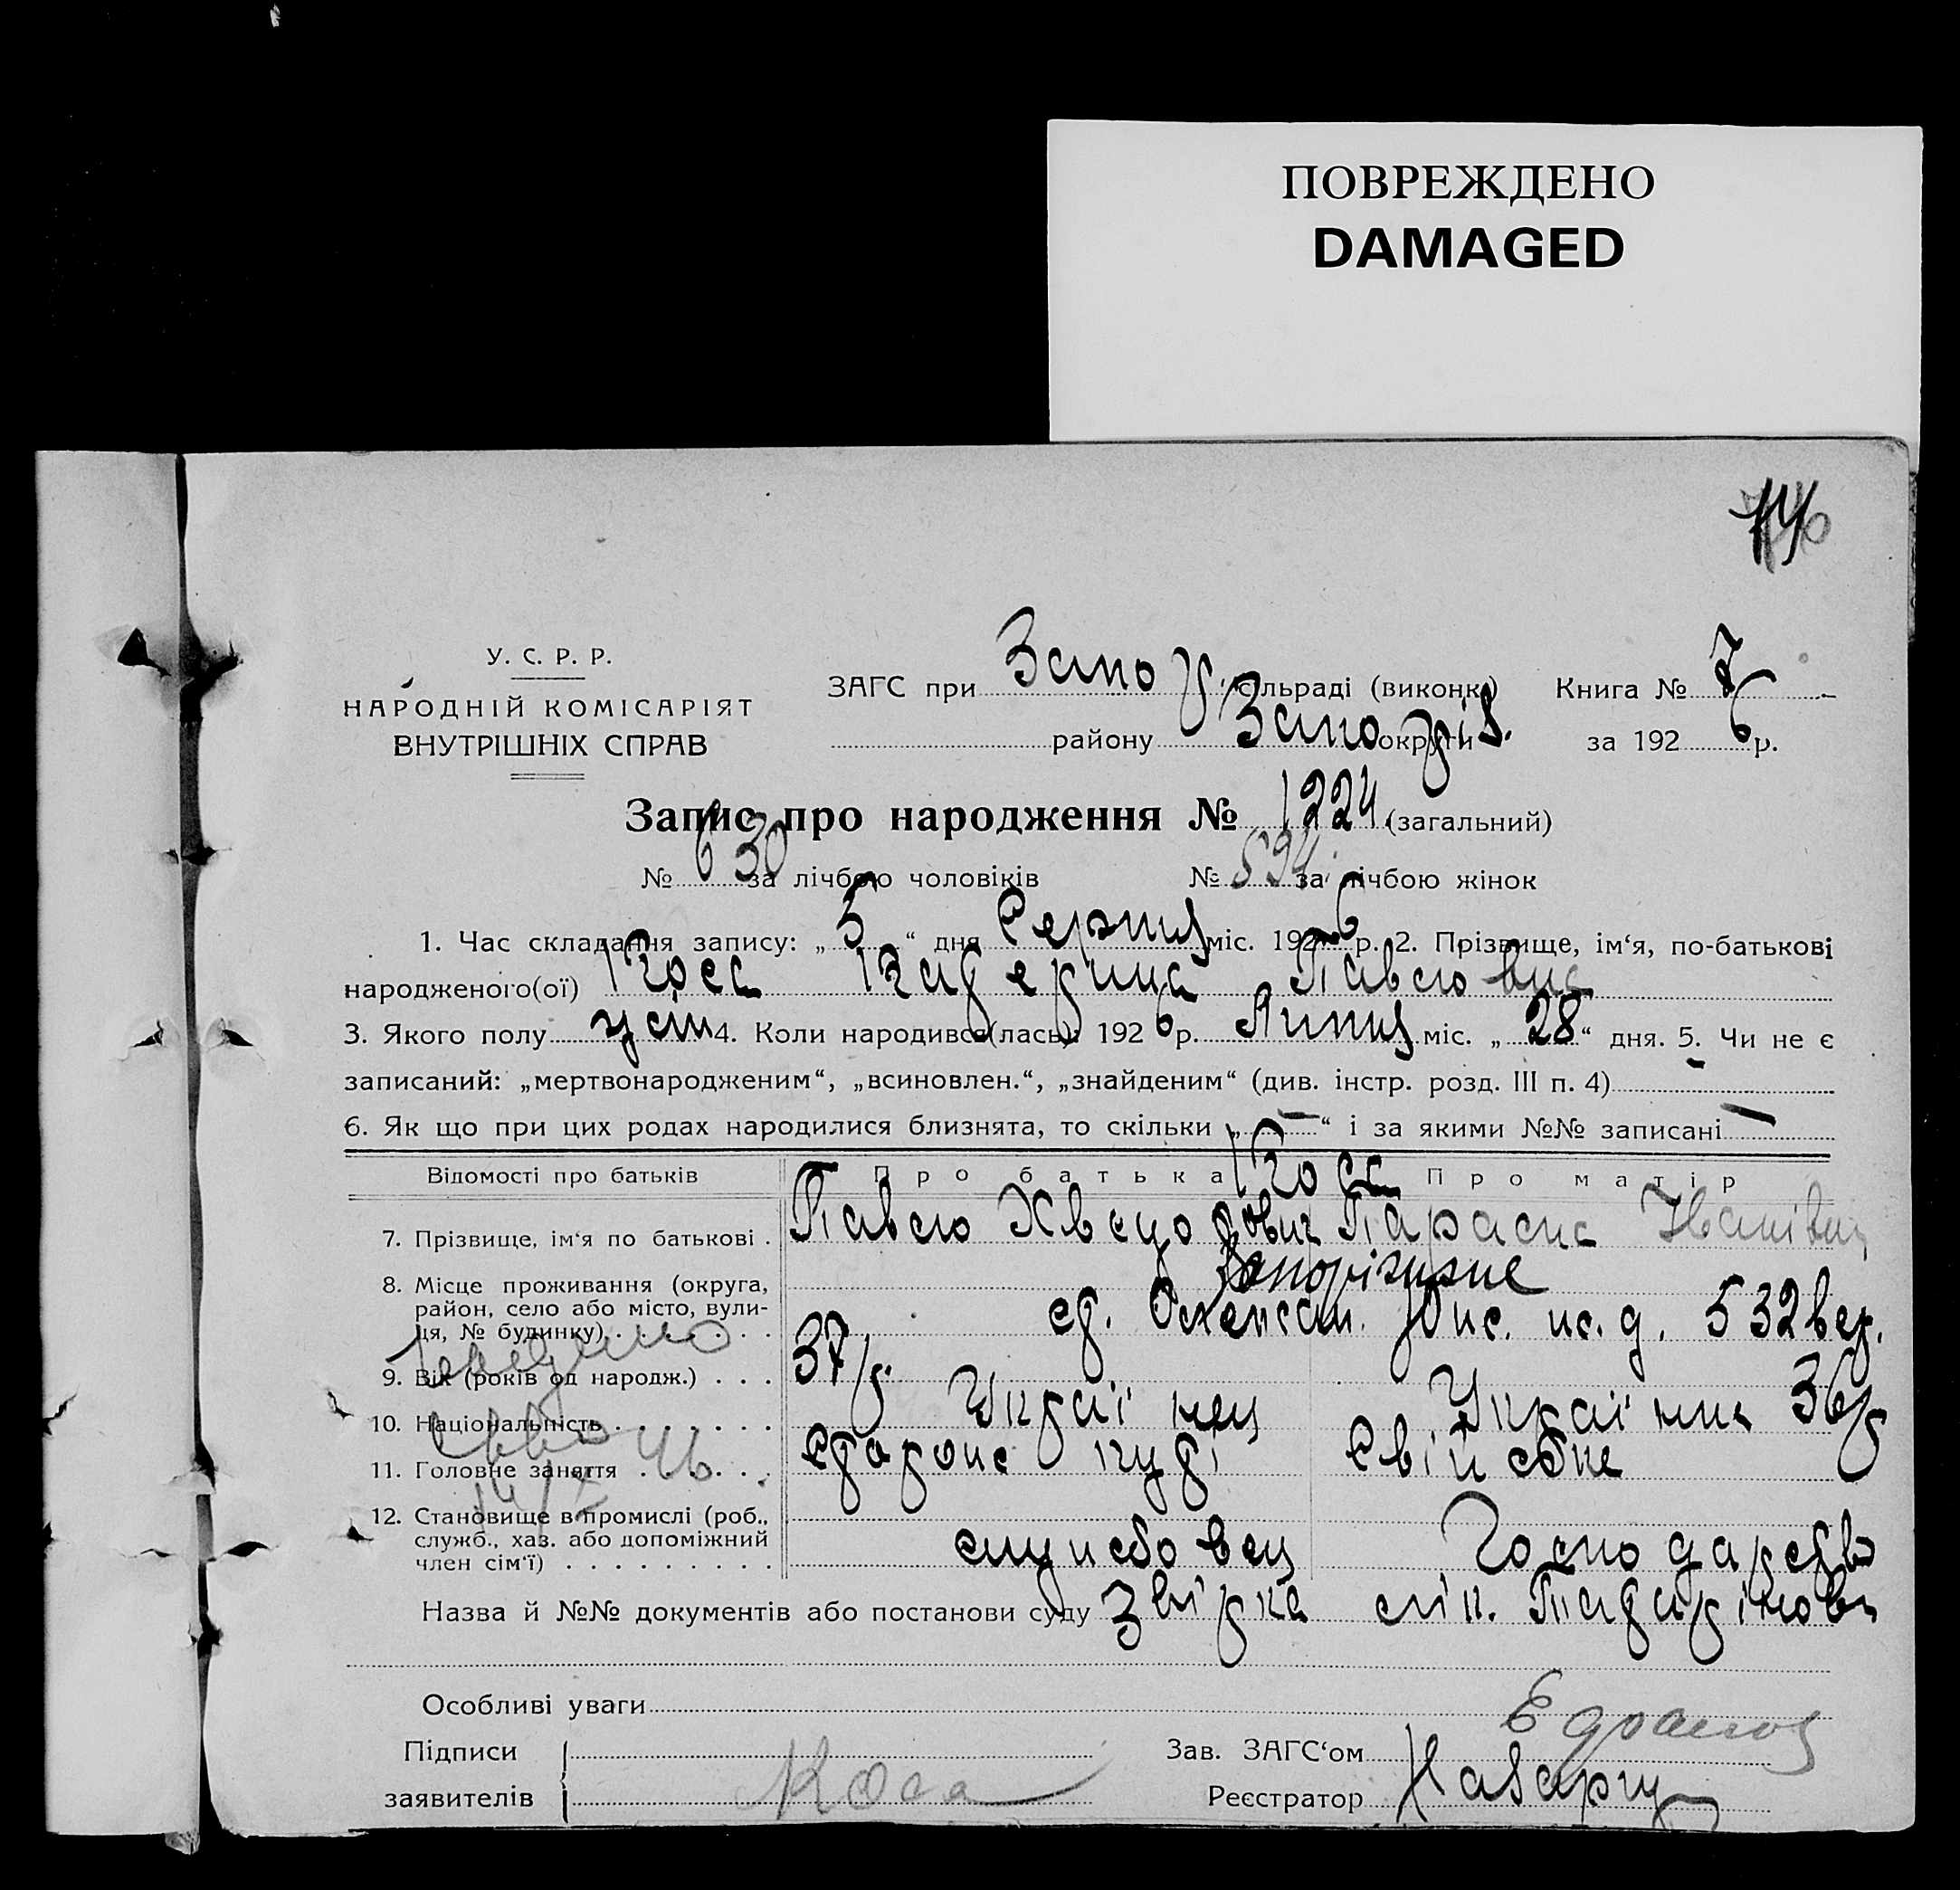 ПОВРЕЖДЕНО
DAMAGED
У. С. Р. Р.
НАРОДНІЙ КОМІСАРІЯТ
ВНУТРІШНІХ СПРАВ
ЗАГС при Запор. сільраді (виконк.) Книга № 7
району Запоріз. округи за 1926 р.
Запис про народження № 1224 (загальний)
№ 630 за лічбою чоловіків № 594 за лічбою жінок
1. Час складання запису: „5“ дня Серпня міс. 1926 р. 2. Прізвище, ім‘я, по-батькові
народженого(ої) Коса Катерина Павловна
3. Якого полу жін 4. Коли народився(лась): 1926 р. Липня міс. „28“ дня. 5. Чи не є
записаний: „мертвонародженим“, „всиновлен.“, „знайденим“ (див. інстр. розд. III п. 4)
6. Як що при цих родах народилися близнята, то скільки „ – “ і за якими №№ записані –
Відомості про батьків Про батька Коса Про матір
7. Прізвище, ім‘я по батькові . Павло Хведорович Параска Іванівна
8. Місце проживання (округа, Запоріжжє
район, село або місто, вули- ст. Олександ. Южн. 532 вер.
ця, № будинку) . . . . . .
9. Вік (років од народж.) . . . 37 р. 36 р
10. Національність . . . . . . . Українец Українка
11. Головне заняття . . . . . Сторож Свійське
12. Становище в промислі (роб.,
служб., хаз. або допоміжний
член сім‘ї) . . . . . . . . . службовец Господарство
Назва й №№ документів або постанови суду
Особливі уваги
Підписи Зав. ЗАГС‘ом
заявителів Коса Реєстратор